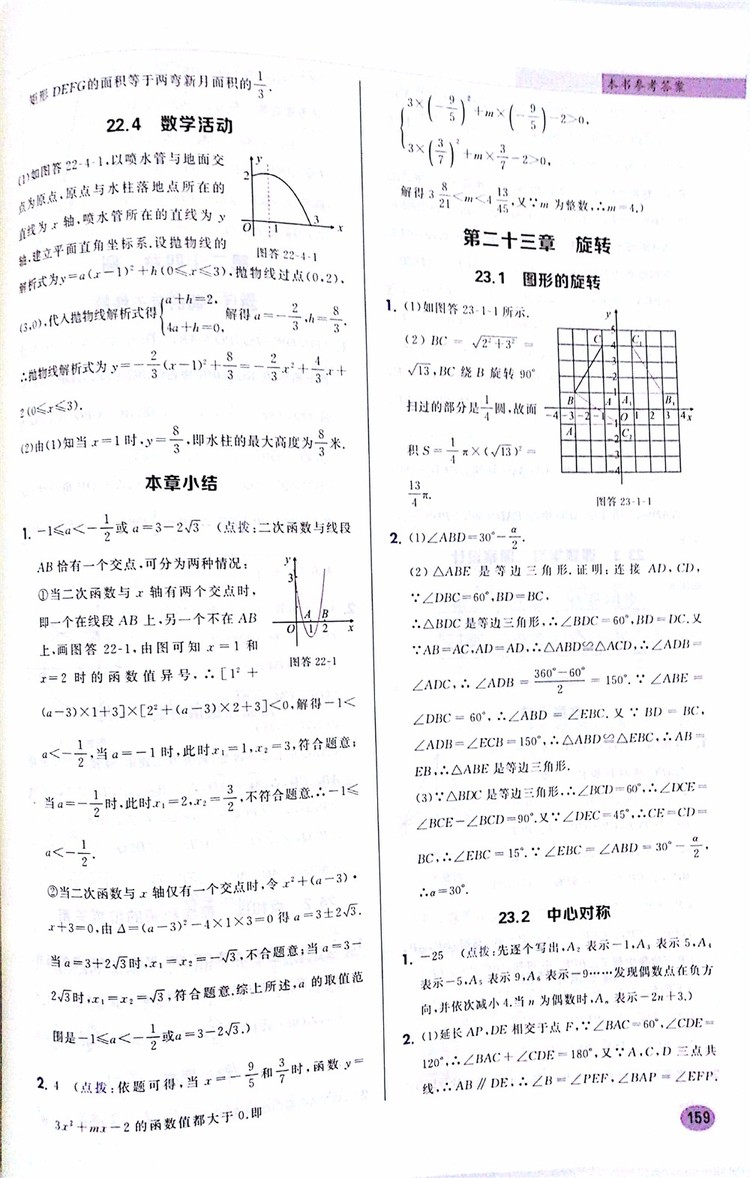 本书参考答案
矩形 DEFG的面积等于两弯新月面积的1/3.
22.4 数学活动
(1)如图答 22-4-1,以喷水管与地面交
点为原点,原点与水柱落地点所在的
直线为 x 轴,喷水管所在的直线为 y
轴,建立平面直角坐标系.设抛物线的
y
2
O
1
3
x
图答 22-4-1
解析式为y=a(x-1)²+h(0≤x≤3),抛物线过点(0,2)、
(3,0),代入抛物线解析式得{a+h=2, 4a+h=0, 解得a=-2/3,h=8/3.
∴抛物线解析式为 y=-2/3(x-1)²+8/3=-2/3x²+4/3x+
2(0≤x≤3).
(2)由(1)知当 x=1 时,y=8/3,即水柱的最大高度为8/3米.
本章小结
1. -1≤a<-1/2或 a=3-2√3 (点拨:二次函数与线段
AB恰有一个交点,可分为两种情况:
①当二次函数与 x 轴有两个交点时,
即一个在线段 AB 上,另一个不在 AB
上,画图答 22-1,由图可知 x=1 和
x=2 时的函数值异号,∴[1²+
y
3
A
B
O
1
2
x
图答 22-1
(a-3)×1+3]×[2²+(a-3)×2+3]<0,解得-1<
a<-1/2,当a=-1时,此时x₁=1,x₂=3,符合题意;
当a=-1/2时,此时x₁=2,x₂=3/2,不符合题意.∴-1≤
a<-1/2.
②当二次函数与 x 轴仅有一个交点时,令 x²+(a-3)·
x+3=0,由 Δ=(a-3)²-4×1×3=0 得 a=3±2√3.
当a=3+2√3时,x₁=x₂=-√3,不合题意;当a=3-
2√3时,x₁=x₂=√3,符合题意.综上所述,a 的取值范
围是-1≤a<-1/2或a=3-2√3.)
2. 4 (点拨:依题可得,当 x=-9/5和3/7时,函数 y=
3x²+mx-2 的函数值都大于 0.即
{3×(-9/5)²+m×(-9/5)-2>0,
3×(3/7)²+m×3/7-2>0,
解得 3 8/21<m<4 13/45,又∵m 为整数,∴m=4.)
第二十三章 旋转
23.1 图形的旋转
1. (1)如图答 23-1-1 所示.
(2) BC = √(2²+3²) =
√13,BC 绕 B 旋转 90°
扫过的部分是1/4圆,故面
积 S=1/4π×(√13)²=
13/4π.
y
5
4
3
2
1
C
C₁
B
A
A₁
B₁
-4
-3
-2
-1
O
1
2
3
4
x
A₂
C₂
-1
-2
-3
-4
图答 23-1-1
2. (1)∠ABD=30°-α/2.
(2) △ABE 是等边三角形.证明:连接 AD,CD,
∵∠DBC=60°,BD=BC,
∴△BDC 是等边三角形,∴∠BDC=60°,BD=DC.又
∵AB=AC,AD=AD,∴△ABD≌△ACD,∴∠ADB=
∠ADC,∴∠ADB=(360°-60°)/2=150°.∵∠ABE=
∠DBC=60°,∴∠ABD=∠EBC.又∵BD=BC,
∠ADB=∠ECB=150°,∴△ABD≌△EBC,∴AB=
EB,∴△ABE 是等边三角形.
(3)∵△BDC 是等边三角形,∴∠BCD=60°,∴∠DCE=
∠BCE-∠BCD=90°.又∵∠DEC=45°,∴CE=CD=
BC,∴∠EBC=15°.∵∠EBC=∠ABD=30°-α/2,
∴α=30°.
23.2 中心对称
1. -25 (点拨:先逐个写出,A₂ 表示-1,A₃ 表示 5,A₄
表示-5,A₅ 表示 9,A₆ 表示-9……发现偶数点在负方
向,并依次减小4.当 n 为偶数时,Aₙ 表示-2n+3.)
2. (1)延长 AP,DE 相交于点 F,∵∠BAC=60°,∠CDE=
120°,∴∠BAC+∠CDE=180°,又∵A,C,D 三点共
线,∴AB∥DE,∴∠B=∠PEF,∠BAP=∠EFP.
159